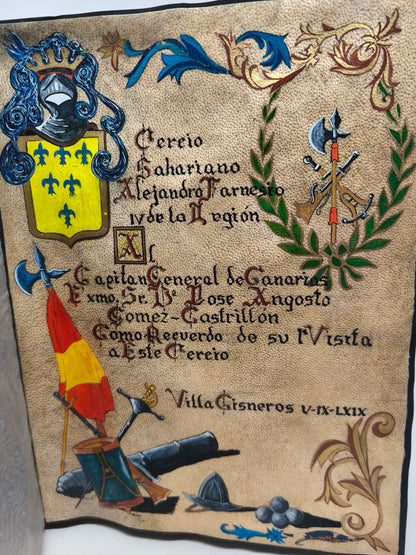 Tercio
Sahariano
Alejandro Farnesio
IV de la Legión
Al
Capitan General de Canarias
Exmo. Sr. Dⁿ Jose Angosto
Gomez-Castrillón
Como Recuerdo de su 1ª Visita
a Este Tercio
Villa Cisneros V-IX-LXIX